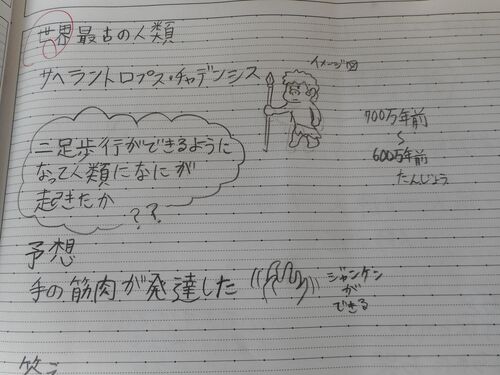 世界最古の人類
サヘラントロプス・チャデンシス
イメージ図
700万年前
〜
600万年前
たんじょう
二足歩行ができるように
なって人類になにが
起きたか
??
予想
手の筋肉が発達した
ジャンケン
が
できる